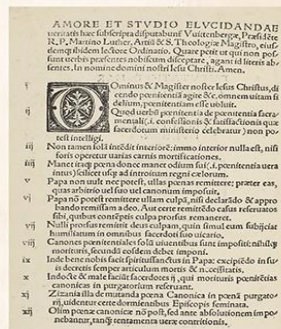 AMORE ET STVDIO ELVCIDANDAE
ueritatis hæc subscripta disputabunť Vuittenbergæ, Præsidẽte
R. P. Martino Luther, Artiũ & S. Theologiæ Magistro, eius-
demq; ibidem lectore Ordinario. Quare petit ut qui non pos-
sunt uerbis præsentes nobiscum disceptare, agant id literis ab
sentes. In nomine domini nostri Iesu Christi. Amen.
i DOminus & Magister noster Iesus Christus, di
cendo pœnitentiã agite &c. omnem uitam fi
delium, pœnitentiam esse uoluit.
ij Quod uerbũ pœnitentia de pœnitentia sacra-
mentali (.i. confessionis & satisfactionis quæ
sacerdotum ministerio celebratur) non po-
test intelligi.
iij Non tamen solã intẽdit interiorẽ: immo interior nulla est, nisi
foris operetur uarias carnis mortificationes.
iiij Manet itaq; pœna donec manet odium sui (.i. pœnitentia uera
intus) scilicet usq; ad introitum regni cælorum.
v Papa non uult nec potest, ullas pœnas remittere: præter eas,
quas arbitrio uel suo uel canonum imposuit.
vj Papa nõ potest remittere ullam culpã, nisi declarãdo & appro
bando remissam a deo. Aut certe remittẽdo casus reseruatos
sibi, quibus cõtẽptis culpa prorsus remaneret.
vij Nulli prorsus remittit deus culpam, quin simul eum subijciat
humiliatum in omnibus sacerdoti suo uicario.
viij Canones pœnitentiales solũ uiuentibus sunt impositi: nihilq;
morituris, secundũ eosdem debet imponi.
ix Inde bene nobis facit spiritussanctus in Papa: excipiẽdo in su
is decretis semper articulum mortis & necessitatis.
x Indocte & male faciũt sacerdotes ij, qui morituris pœnitẽtias
canonicas in purgatorium reseruant.
xj Zizania illa de mutanda pœna Canonica in pœnã purgato-
rij, uidentur certe dormientibus Episcopis seminata.
xij Olim pœnæ canonicæ nõ post, sed ante absolutionem impo-
nebantur, tanq̃ tentamenta ueræ contritionis.